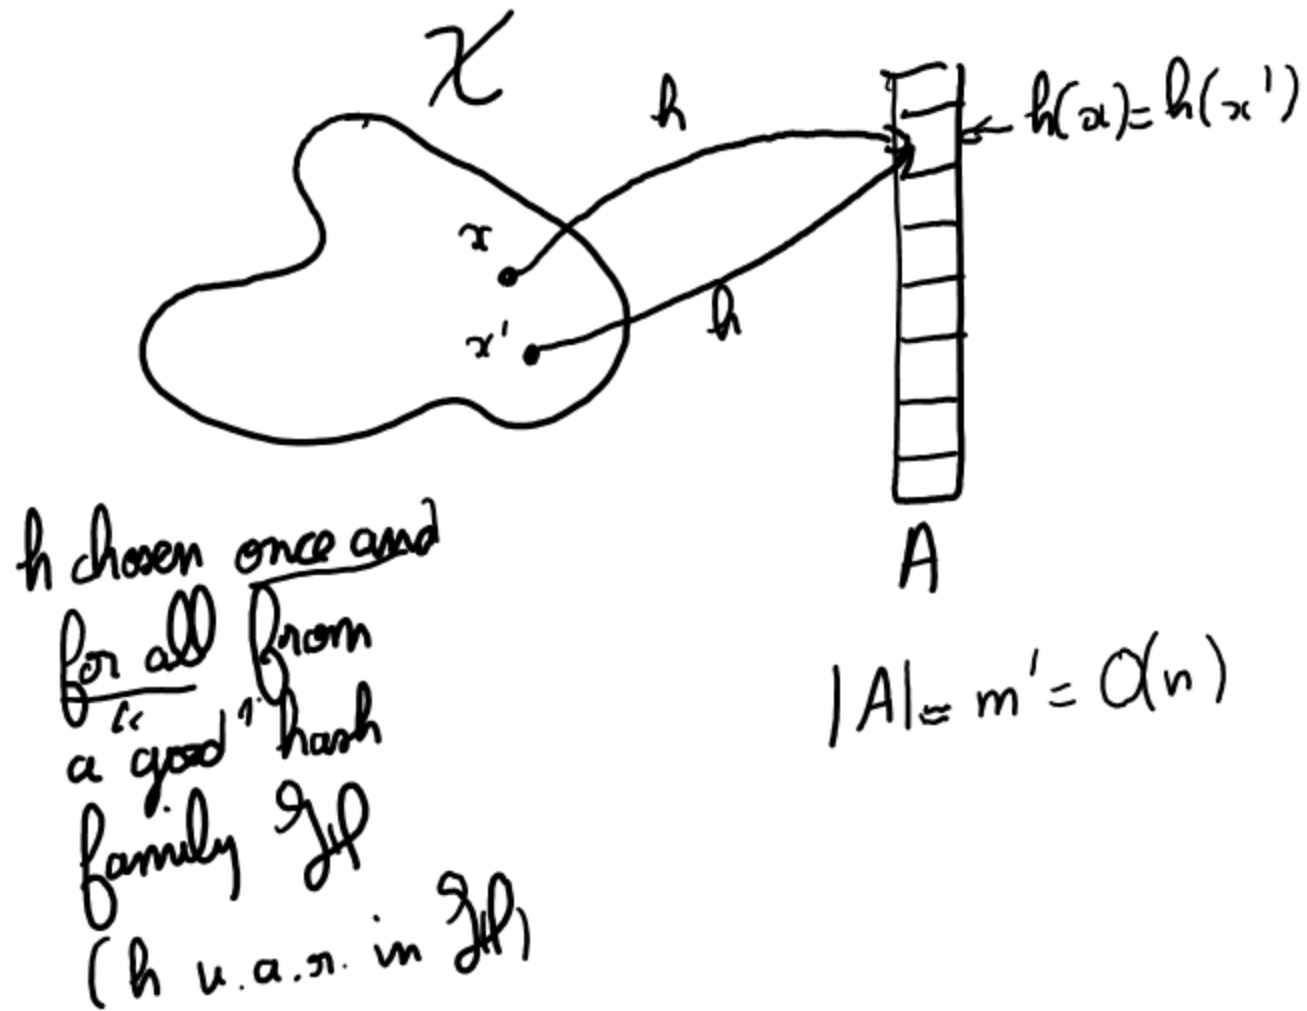 𝒳
h
h(x) = h(x')
x
x'
h
A
h chosen once and
for all from
a "good" hash
family ℋ
(h u.a.r. in ℋ)
|A| = m' = O(n)